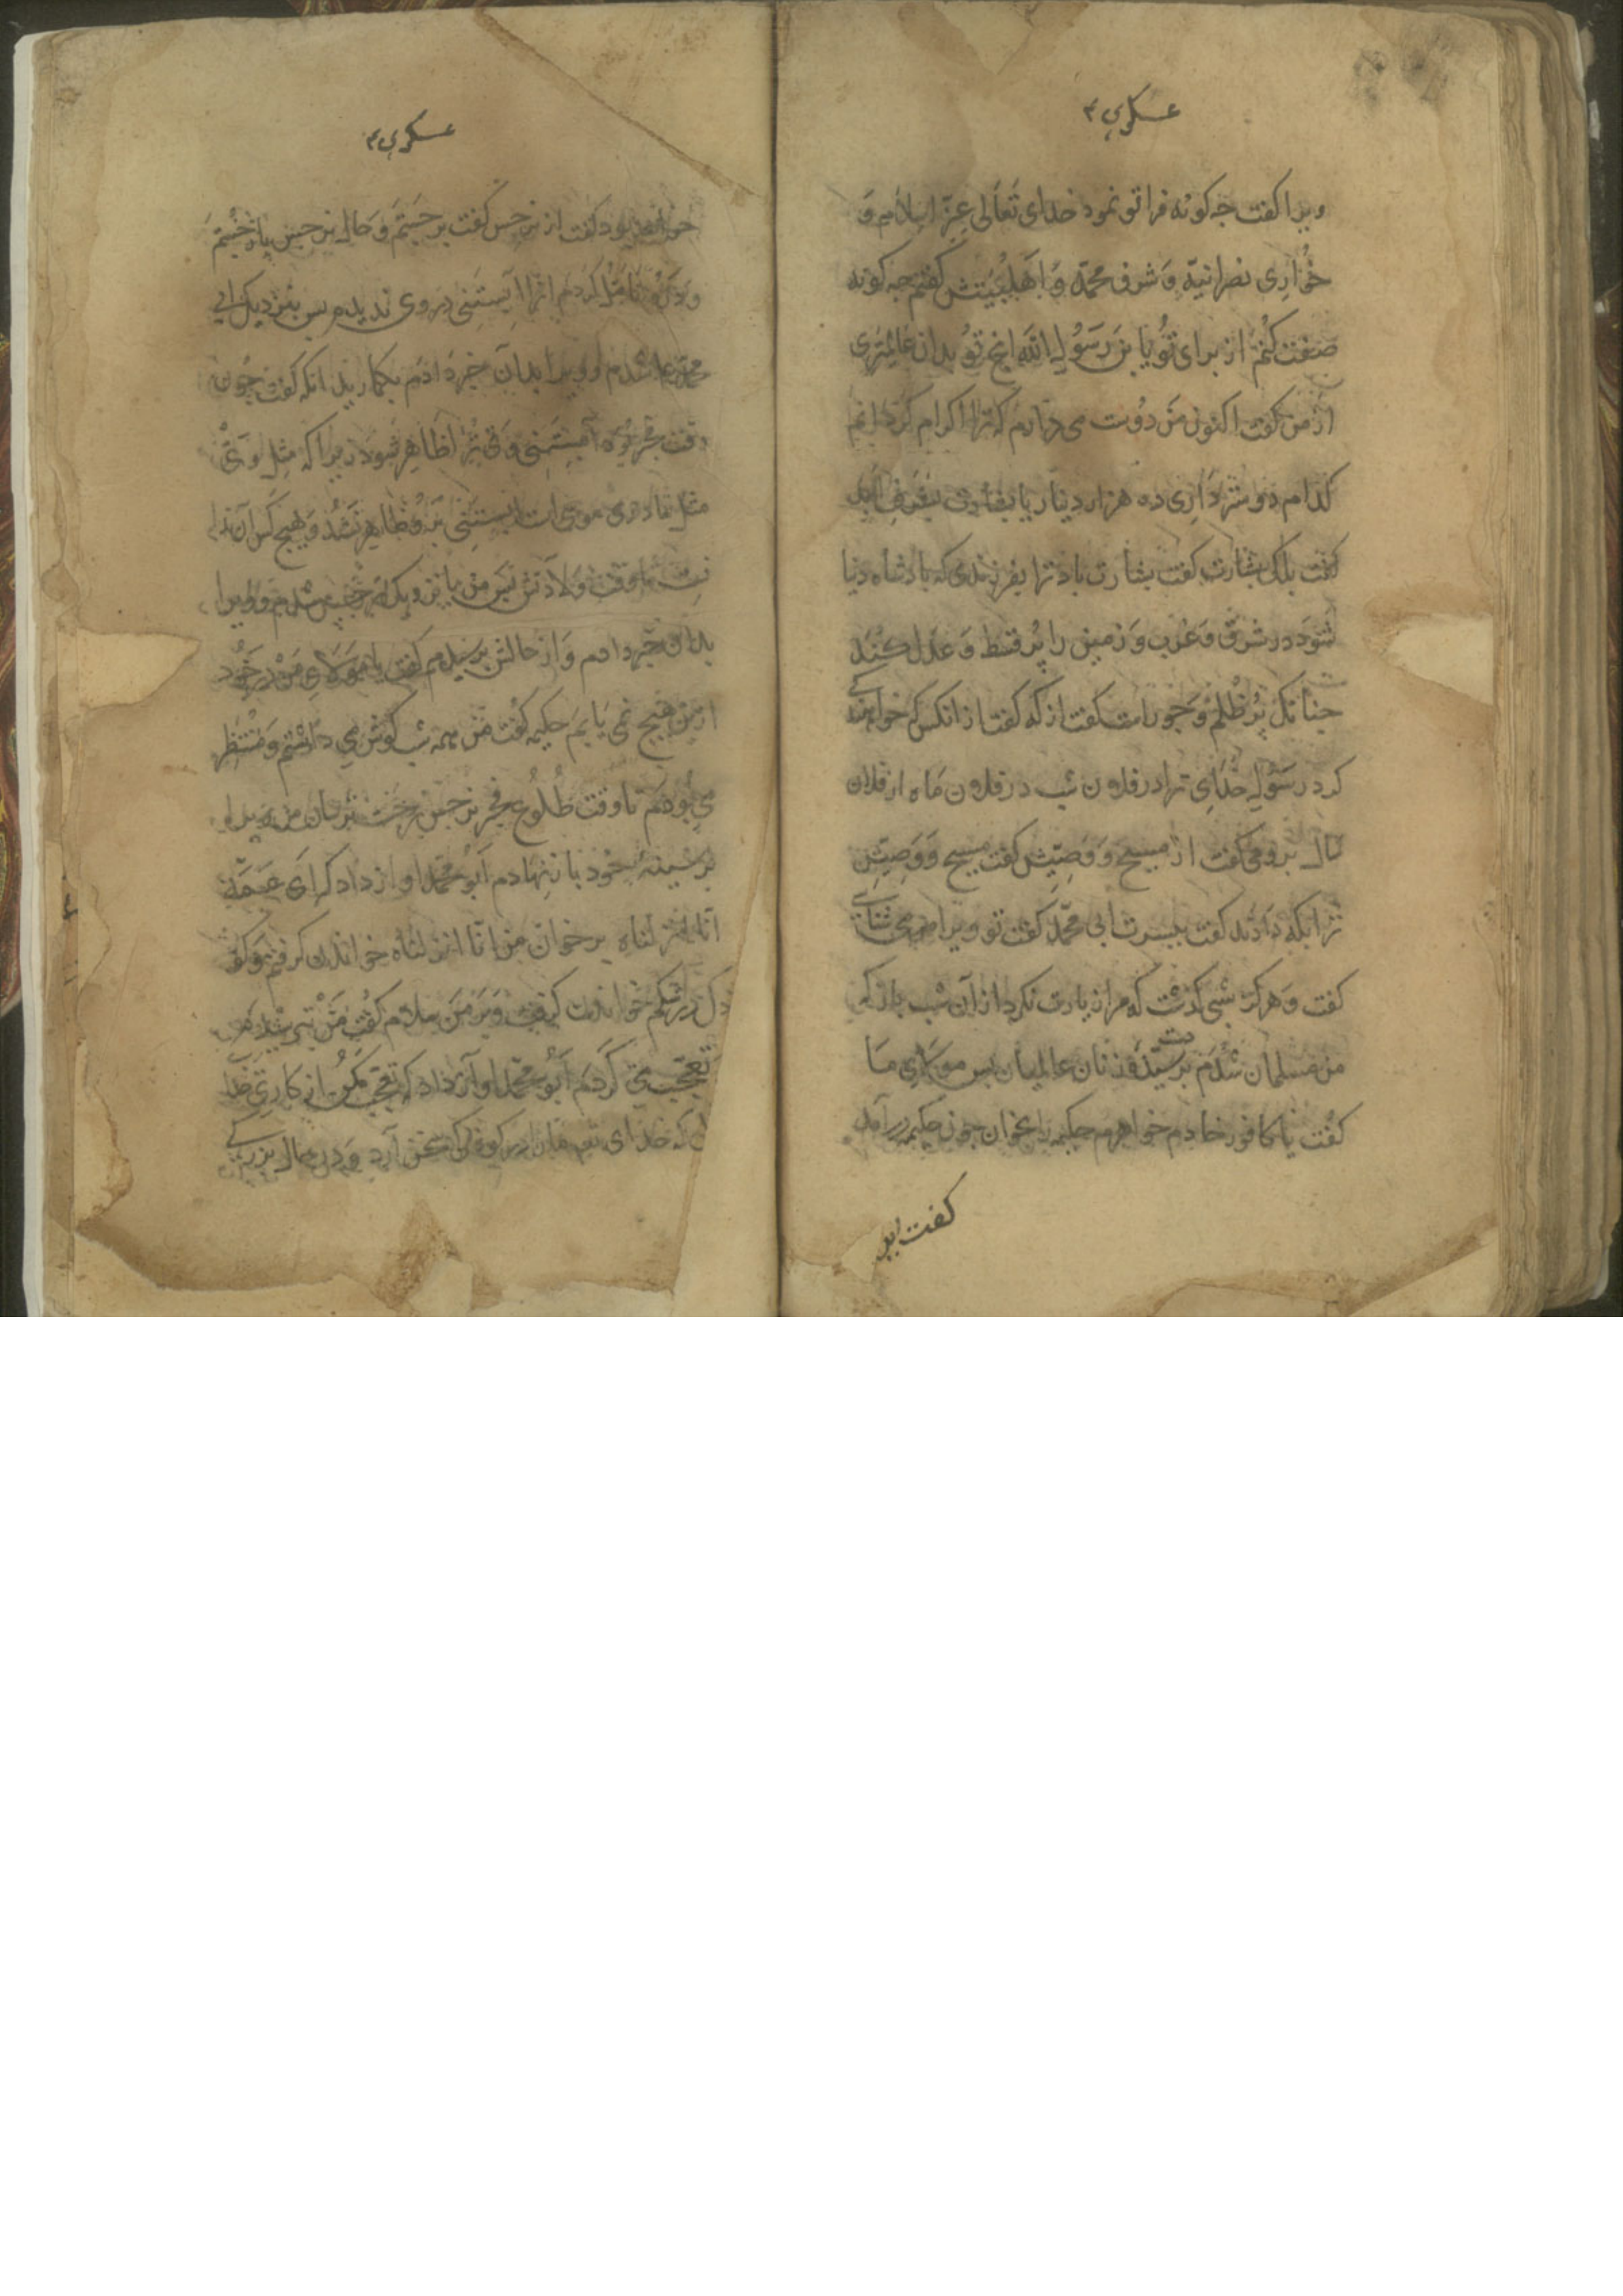 عسکری ۴
ویرا کفت چه کونه فرا تو نمود خدای تَعَالی عِزّ اسلام وَ
خوُاریِ نصرانیّه وَ شرف محمّد وَ اَهْلبَیتش کفتم چه کونه
صِفت کُنمَ از برای تُو یا بنَ رَسُولِ اللّه انچ توُ بدان عالمِتری
از من کفت اکنون مَن دُوست می دارم که ترا اکرام کنم
کدام دوستر دَاری ده هزار دینار یا بشارتی بشرف ابد
کفت بلکی بشارت کفت بشارت باد ترا بفرزندی که پادشاه دنیا
شَوَد در شرق وَ غرب وَ زمین را پُر قسط وَ عدل کُند
چنانک پُر ظُلم وَ جور است کفت از که کفت از انکس که خواستکی
کرد رَسُولِ خُدَای ترا در فلان شب در فلان مَاه از فلان
سال برومی کفت از مسیح وَ وَصیّش کفت مسیح وَ وَصِیّش
ترا بکه دَادند کفت بپسرت ابی محمّد کفت تو ویرا می شناسی
کفت وَ هرکز شبی کذشت که مرا زیارت نکرد از آن شب باز که
من مسلمان شُدَم بر دست سیّدهٔ زنان عالمیان پس مولای ما
کفُت یا کافور خادم خواهرم حکیمه را بخوان چون حکیمه درآمد
کفت ابو
عسکری ۴
بود کفت از نرجس کفت برجَستَم وَ حال نرجس باز جُستم
وَ تأمّل کردم اثر آبستنی در وی ندیدم پس بنزدیک ابی
محمد شدم وَ ویرا بدان خبر دادم بکمارید انکه کفت چون
وقت فجر بُوَد آبستنی وی ترا ظاهر شود زیرا که مثل وَیْ
مثل مادر موسی است آبستنی برو ظاهر نشد وَ هیچ کس آن ندا
نست تا وقت وَلادتش پس من با نزدیک نرجس شدم وَ ویرا
بدان خبر دادم وَ از حالش پرسیدم کفت یا مَولایِ مَن در خود
ازین هیچ نمی یابم حکیمه کفت مَن همه شب کوش می داشتم وَ منتظر
می بُودم تا وقت طُلُوع فجر نرجس من ویرا
بر سینهٔ خود باز نهادم ابُو محمّد اواز داد که ای عَمّه
انّا انزلناه بر خوان من انّا انزلناه خواندن کرفتم کو
دک در شکم خواندن کرفت وَ بَر مَن سلام کفت مَن بترسیدم
تعجّب می کردم ابُو محمّد اواز داد که تعجّب مکن از کار خدا
که خدای تع مارا در کودکی بسخن آرد وَ در حال بزرکی